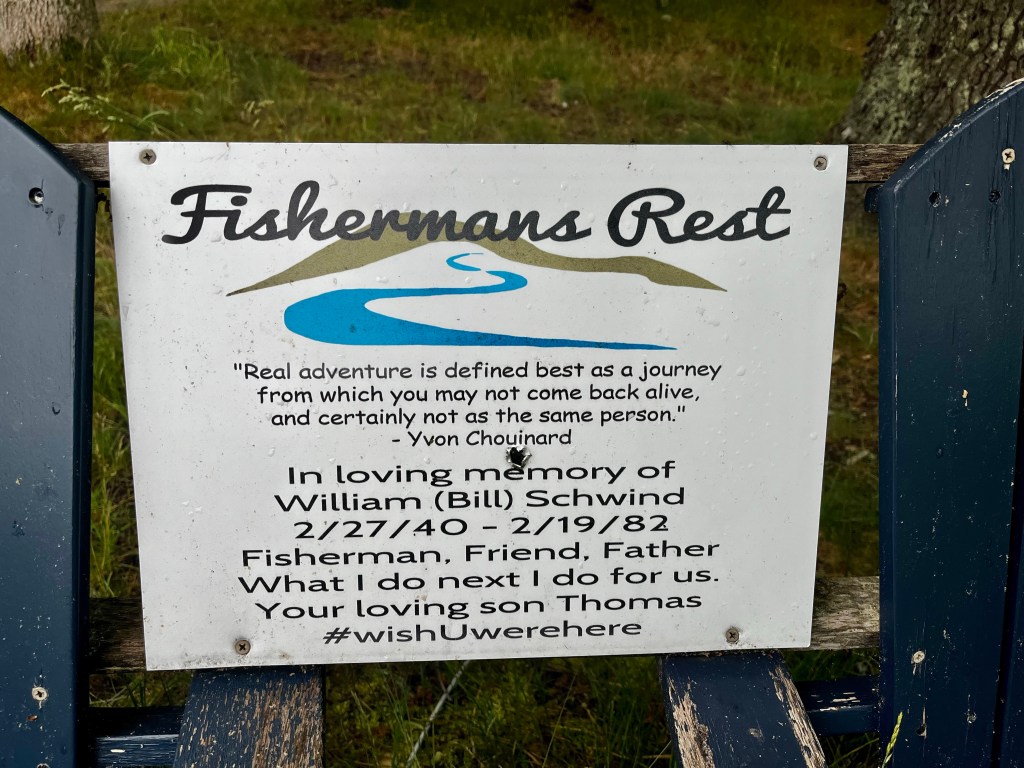 Fishermans Rest
"Real adventure is defined best as a journey
from which you may not come back alive,
and certainly not as the same person."
- Yvon Chouinard
In loving memory of
William (Bill) Schwind
2/27/40 - 2/19/82
Fisherman, Friend, Father
What I do next I do for us.
Your loving son Thomas
#wishUwerehere